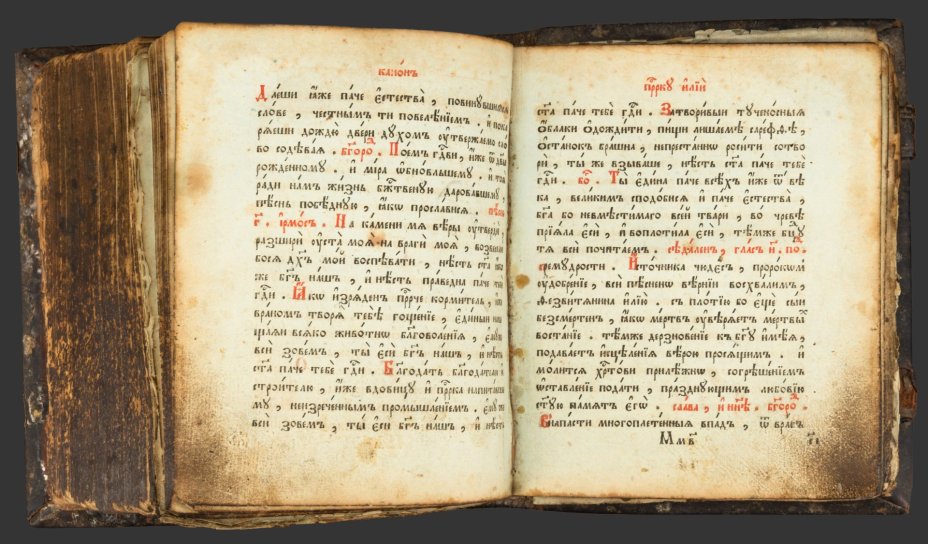 канѡ́нъ
Дае́ши ꙗ҆́же па́че є҆стества̀, повинꙋвшимсѧ
сло́ве, че́стнымъ ти повелѣ́нїемъ. и҆ пока
рѧ́еши дождю̀ две́ри дꙋ́хомъ ᲂу҆твержа́емо сло́
во содѣва́ѧ. бг҃оро. Пое́мъ гдⷭ҇ви, и҆́же ѿ дв҃ы
рожде́нномꙋ. и҆ мі́ра ѡ҆бновльшемꙋ. и҆ той
ра́ди на́мъ жи́знь бж҃твенꙋю дарова́вшемꙋ,
пѣ́снь побѣ́днꙋю, ꙗ҆́кѡ просла́висѧ. пѣснь
г҃. і҆рмо́съ. На ка́мени мѧ вѣ́ры ᲂу҆тверди́,
разширѝ ᲂу҆ста̀ моѧ̀ на врагѝ моѧ̀, возвесели
босѧ дх҃ъ мо́й воспѣва́ти, нѣ́сть ст҃а ꙗ҆ко
же бг҃ъ на́шъ, и҆ нѣ́сть пра́ведна па́че тебе
гдⷭ҇и. Ꙗ҆́кѡ и҆зрѧ́денъ прⷪ҇рче корми́тель,
вра́комъ творѧ̀ тебѣ̀ гоще́нїе, є҆ди́ный
щаѧи всѧ́ко живо́тно бл҃говоле́нїѧ, є҆мꙋже
всѝ зове́мъ, ты̀ є҆сѝ бг҃ъ на́шъ, и҆ нѣ́сть
ст҃а па́че тебѐ гдⷭ҇и. Бл҃года́ть бл҃года́телю
строи́телю, и҆́же вдови́цꙋ и҆ прⷪ҇рка напита́вше
мꙋ, неизрече́ннымъ промышле́нїемъ. є҆мꙋже
всѝ зове́мъ, ты̀ є҆сѝ бг҃ъ на́шъ, и҆ нѣ́сть
прⷪ҇ркꙋ и҆лїѝ
ст҃а па́че тебѐ гдⷭ҇и. Затвори́выи тꙋченѡ́сныѧ
ѻ҆́блаки ѡ҆дожди́ти, пи́щи лиша́емѣ саре́фѳѣ,
ѡ҆ста́нокъ бра́шна, непреста́ннѡ роси́ти сотво
рѝ, ты́ ѧ҆́же взыва́ше, нѣ́сть ст҃а па́че тебѐ
гдⷭ҇и. бо. Ты̀ є҆ди́на па́че всѣ́хъ и҆́же ѿ вѣ́
ка, вели́кимъ сподо́бисѧ и҆ па́че є҆стества̀,
бг҃а бо невмѣсти́маго все́й тва́ри, во чре́вѣ
прїѧ́ла є҆сѝ, и҆ воплоти́ла є҆сѝ, тѣ́мже бц҃ꙋ
тѧ всѝ почита́емъ. сѣда́ленъ, гла́съ и҃. по.
премꙋ́дрости. И҆сто́чника чюде́съ, проро́кѡмъ
ᲂу҆добре́нїе, всѝ пѣ́сньми вѣ́рнїи восхва́лимъ,
ѳезвитѧ́нина и҆лїю̀. съ пло́тїю бо є҆щѐ сы́и
безсме́ртенъ, ꙗ҆́кѡ ме́ртвъ ᲂу҆вѣрѧ́етъ ме́ртвымъ
воста́нїе. тѣ́мже дерзнове́нїе къ бг҃ꙋ и҆мѣ́ѧ,
подава́етъ и҆сцѣле́нїѧ вѣ́рою просѧ́щимъ. и҆
мо́литсѧ хрⷭ҇то́ви прилѣ́жнѡ, согрѣше́нїемъ
ѡ҆ставле́нїе пода́ти, пра́зднꙋющимъ любо́вїю
ст҃ꙋю па́мѧть є҆гѡ̀. сла́ва, и҆ ны́нѣ. бг҃оро.
Внапа́сти многоплете́нныѧ впа́дъ, ѿ вра́гъ
Ммв҃